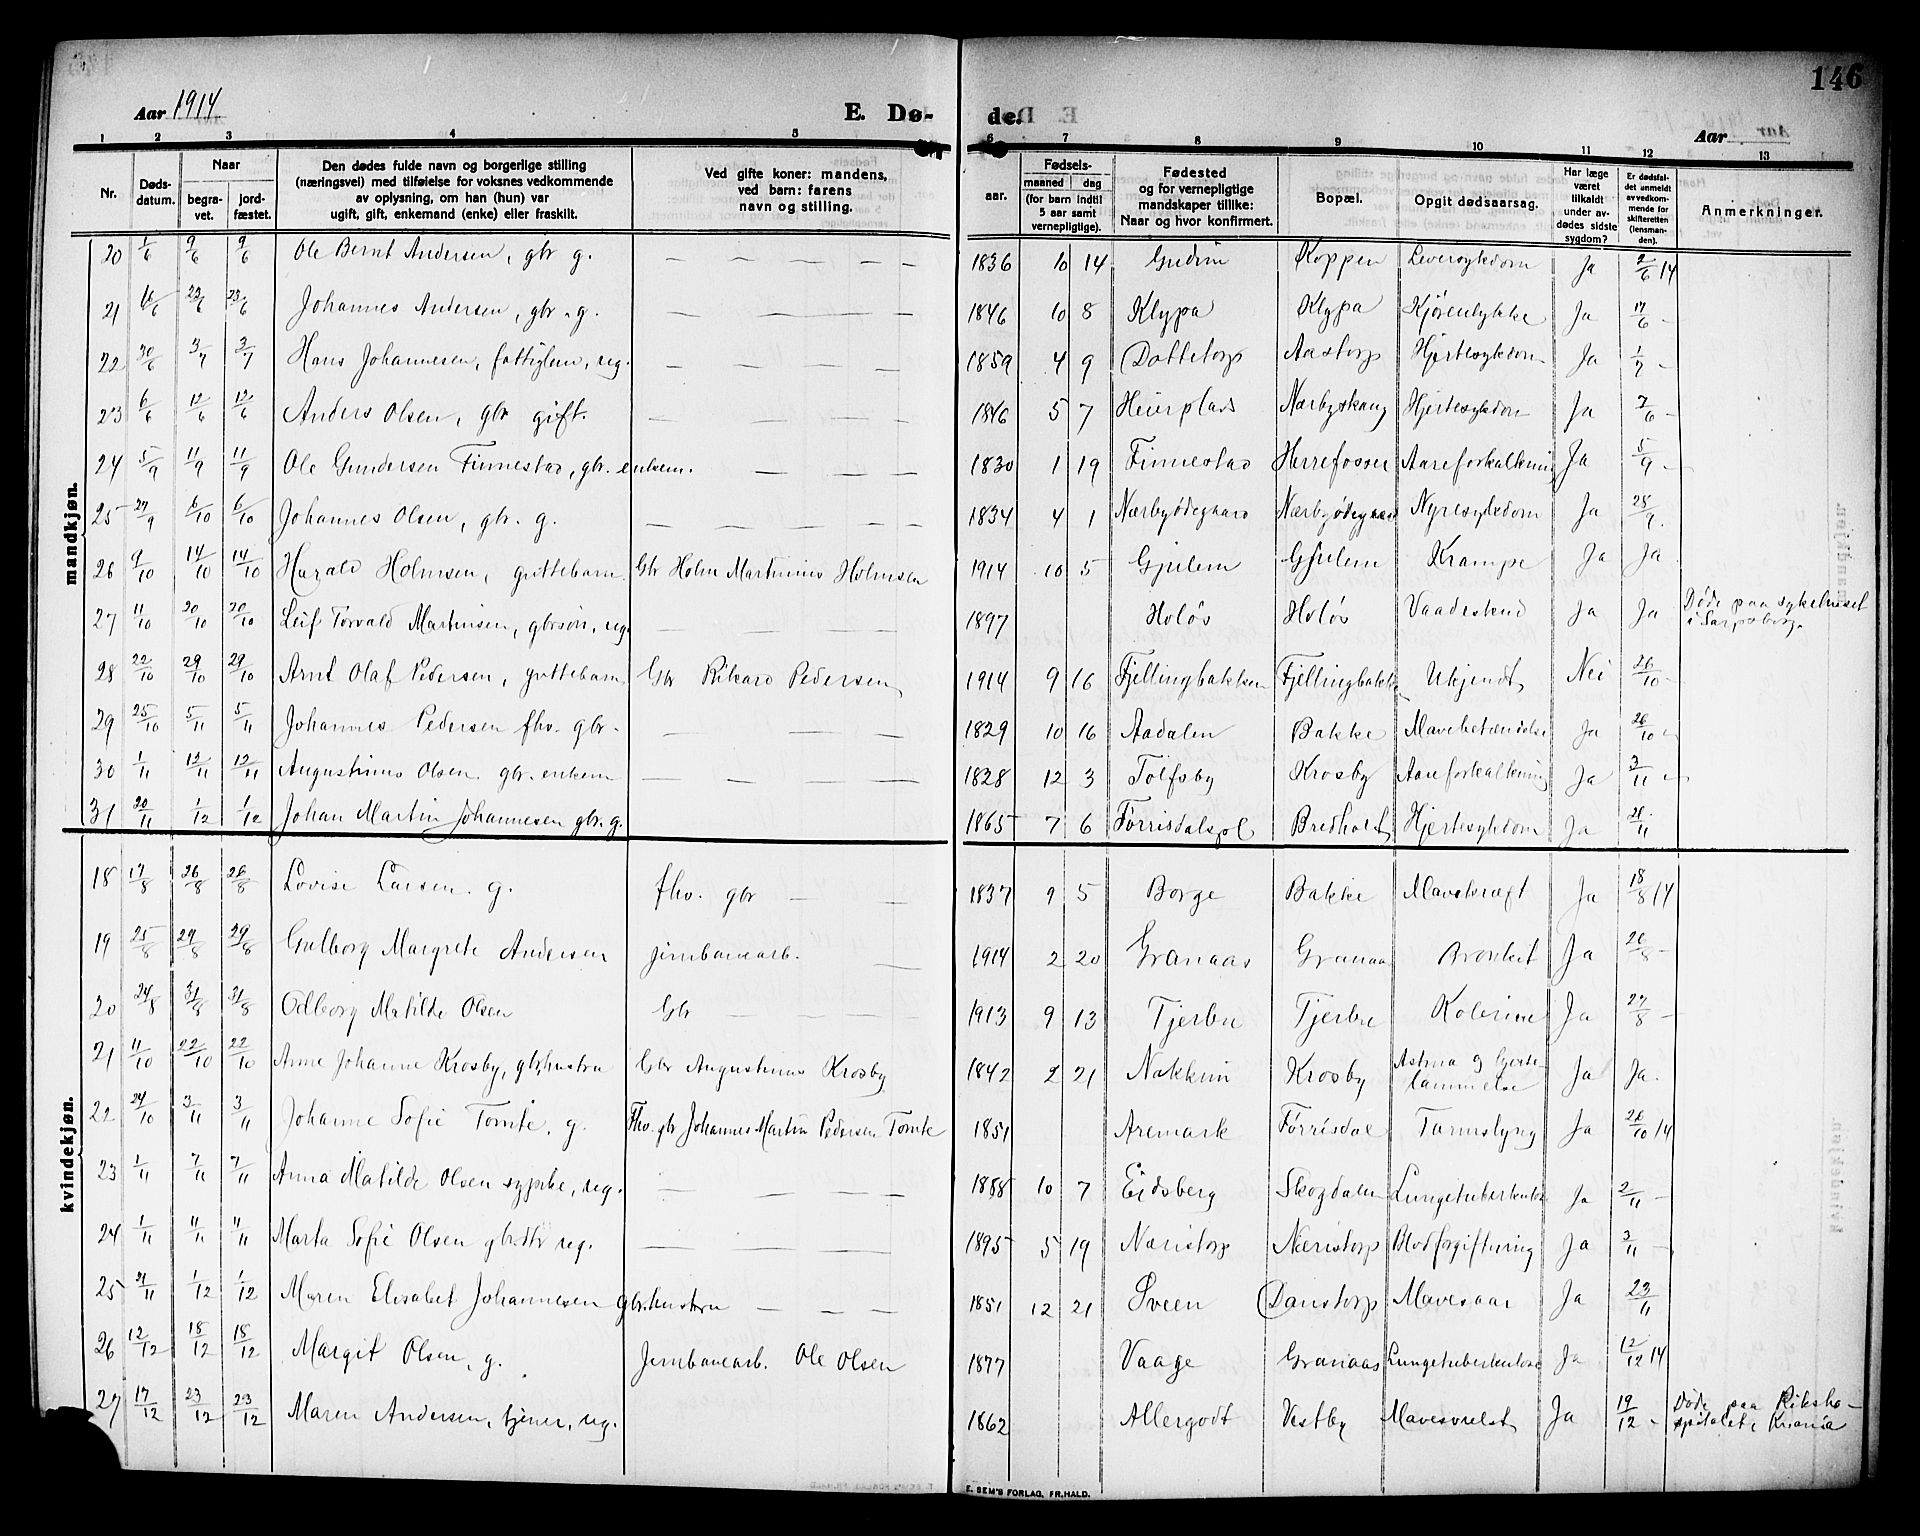 146
Aar 1914
E. Dø-
de.
Aar
1 2 3 4 5 6 7 8 9 10 11 12 13
Nr.
Døds-
datum.
Naar
begra-
vet.
jord-
fæstet.
Den dødes fulde navn og borgerlige stilling
(næringsvei) med tilføielse for voksnes vedkommende
av oplysning, om han (hun) var
ugift, gift, enkemand (enke) eller fraskilt.
Ved gifte koner: mandens,
ved barn: farens
navn og stilling.
aar.
Fødsels-
maaned dag
(for barn indtil
5 aar samt
vernepligtige).
Fødested
og for vernepligtige
mandskaper tillike:
Naar og hvor konfirmert.
Bopæl.
Opgit dødsaarsag.
Har læge
været
tilkaldt
under av-
dødes sidste
sygdom?
Er dødsfal-
det anmeldt
av vedkom-
mende for
skifteretten
(lensman-
den).
Anmerkninger.
mandkjøn.
20 1/6 9/6 9/6 Ole Bernt Andersen, gbr g. — — — — — 1836 10 14 Gudim Koppen Leversykdom Ja 2/6 14
21 16/6 23/6 23/6 Johannes Andersen, gbr. g. — — — — 1846 10 8 Klypa Klypa Ja 17/6 —
22 30/6 3/7 3/7 Hans Johannesen, fattiglem, ug. — — — — 1859 4 9 Dottetorp Aastorp Hjertesykdom Ja 1/7 —
23 6/6 12/6 12/6 Anders Olsen, gbr gift. — — — — 1846 5 7 Heierplads Nærbyskaug Hjertesykdom Ja 7/6 —
24 5/9 11/9 11/9 Ole Gundersen Finnestad, gbr. enkem. — — — 1830 1 19 Finnestad Herrefosser Aareforkalkning Ja 5/9 —
25 27/9 6/10 6/10 Johannes Olsen, gbr. g. — — — — — 1834 4 1 Nærbyødegaard Nærbyødegaard Nyresykdom Ja 28/9.
26 9/10 14/10 14/10 Harald Holmsen, guttebarn Gbr Holm Martinius Holmsen 1914 10 5 Gjulem Gjulem Krampe Ja Ja
27 11/10 20/10 20/10 Leif Torvald Martinsen, gbrsøn, ug. — — — — 1897 Holøs Holøs Vaadeskud Ja Ja Døde paa sykehuset
i Sarpsborg.
28 22/10 29/10 29/10 Arnt Olaf Pedersen, guttebarn Gbr Rikard Pedersen 1914 9 16 Fjellingbakken Fjellingbakken Ukjendt Nei 26/10 —
29 25/10 5/11 5/11 Johannes Pedersen fhv. gbr. — — — 1829 10 16 Aadalen Bakke Mavebetændelse Ja 26/10 —
30 1/11 12/11 12/11 Augustinus Olsen gbr. enkem — — — — 1828 12 3 Tolfsby Krosby Aareforkalkning Ja 3/11 —
31 20/11 1/12 1/12 Johan Martin Johannesen gbr. g. 1865 7 6 Bredholt Hjertesykdom Ja 21/11
kvindekjøn.
18 17/8 26/8 26/8 Lovise Larsen. g. fhv. gbr — — 1837 9 5 Borge Bakke Mavekræft Ja 18/8 14
19 25/8 29/8 29/8 Gulborg Margrete Andersen jernbanearb. — 1914 2 20 Granaas Granaas Bronkit Ja 26/8 —
20 24/8 31/8 31/8 Odborg Matilde Olsen Gbr — — — — 1913 9 13 Tjerbu Tjerbu Kolerine Ja 27/8 —
21 11/10 22/10 22/10 Anne Johanne Krosby, gbrhustru Gbr Augustinus Krosby 1842 2 21 Nakkim Krosby Astma og hjerte-
lammelse Ja Ja.
22 24/10 3/11 3/11 Johanne Sofie Tomte, g. Fhv. gbr Johannes Martin Pedersen Tomte 1851 Aremark Førrisdal Tarmslyng Ja 26/10 14
23 1/11 7/11 7/11 Anna Matilde Olsen sypike, ug. — — — — 1888 10 7 Eidsberg Skogdalen Lungetuberkulose Ja 2/11 —
24 1/11 11/11 11/11 Marta Sofie Olsen gbrdtr ug. — — — — 1895 5 19 Næristorp Næristorp Blodforgiftning Ja 3/11 —
25 21/11 1/12 1/12 Maren Elisabet Johannesen gbr.hustru — — — 1851 12 21 Sveen Danstorp Mavesaar Ja 23/11
26 12/12 18/12 18/12 Margit Olsen, g. Jernbanearb. Ole Olsen 1877 Vaage Granaas Lungetuberkulose Ja 12/12 14
27 17/12 23/12 23/12 Maren Andersen, tjener, ug. 1862 Allergodt Vestby Mavesvulst Ja 19/12 — Døde paa Riksho-
spitalet, Kr.ania
E. SEM'S FORLAG, FR.HALD.